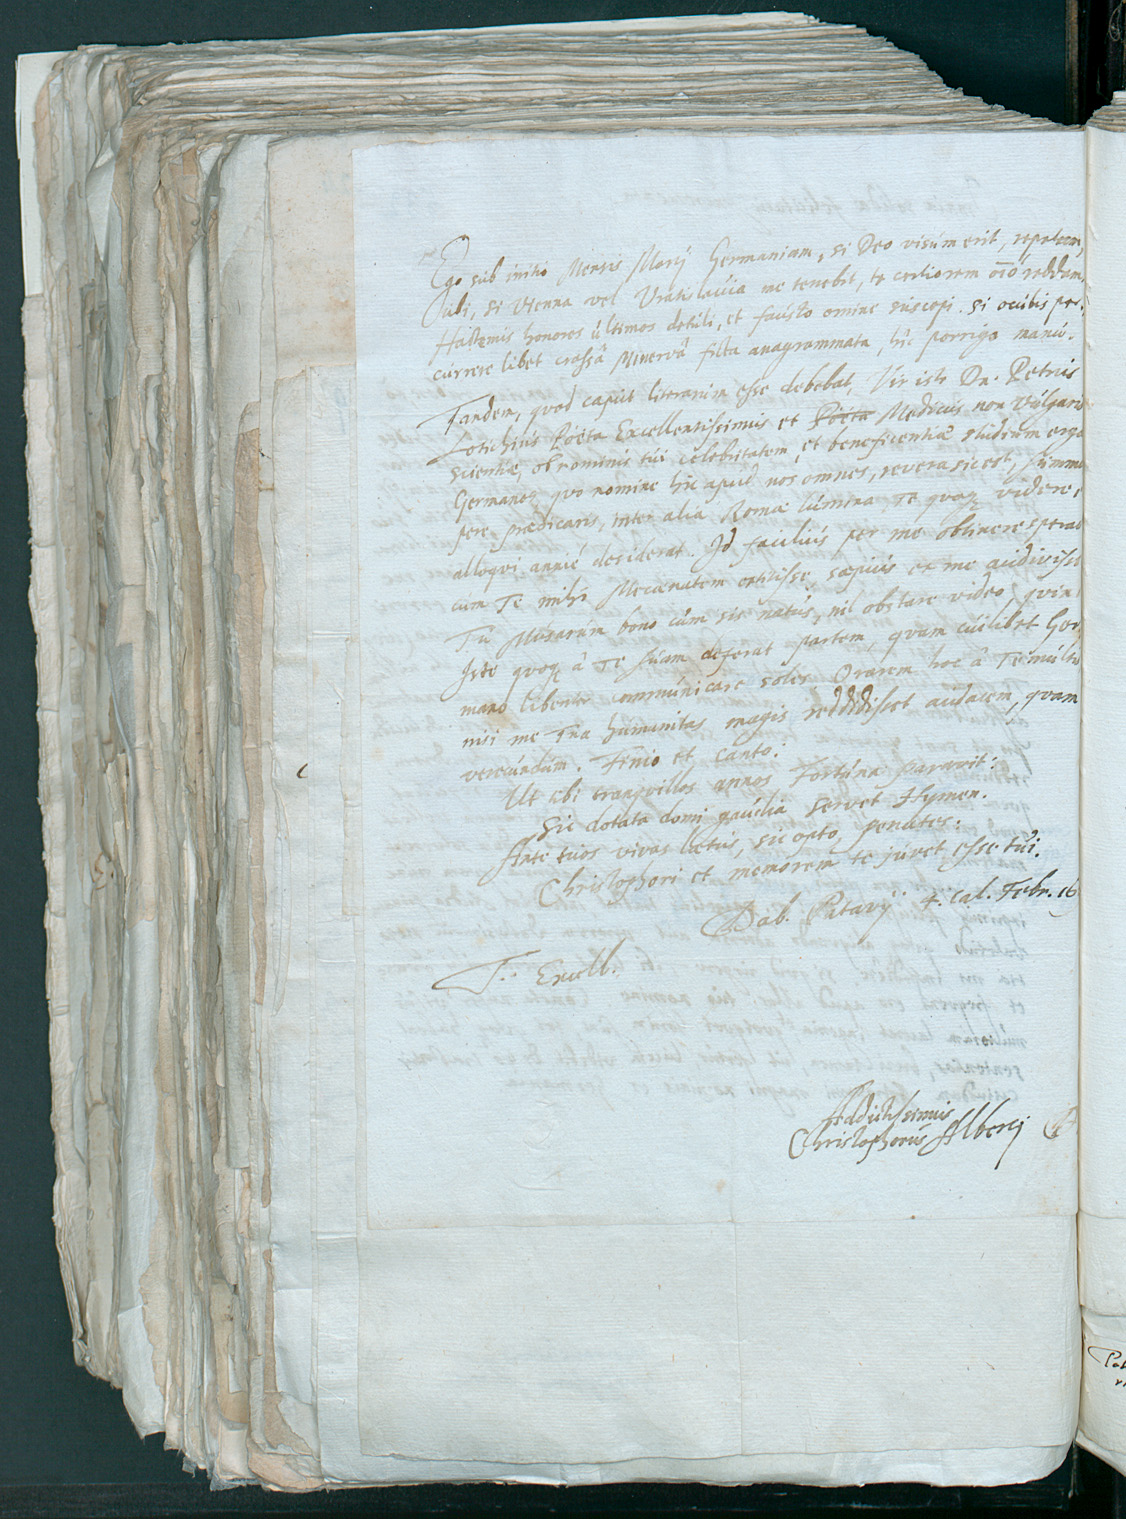 Ego sub initio Mensis Maij Germaniam, si Deo visum erit, repetam,
Ubi, si Vienna vel Uratislavia me tenebit, te certiorem reddam,
honores ultimos detuli, et fausto omine suscepi. Si oculis per-
currere libet crassâ Minervâ ficta anagrammata, hîc porrigo manu.
Tandem, quod caput literarum esse debebat, Vir iste Dn. Petrus
Lotichius Poëta Excellentissimus et Poëta Medicus non vulgaris
scientiæ, ob nominis tui celebritatem, et beneficentiæ studium erga
Germanos, quo nomine hic apud nos omnes, revera sic est, summo-
pere prædicaris, inter alia Romæ lumina Te quoq videre,
alloqui desiderat. Id facilius per me obtinere sperat
cum Te mihi Mecænatem sæpius ex me audivisset
Tu Musarum bono cum sis natus, nil obstare video, quin
Iste quoq â Te suam deferat partem, quam cuilibet Ger-
mano libenter communicare soles. Orarem hoc â Te multis
nisi me Tua humanitas magis reddidisset audacem, quam
verecundum. Finio et canto:
Ut tibi tranquillos annos Fortuna paravit:
Sic dotata domi gaudia servet Hymen.
Ante tuos vivas lætus, sic opto, penates:
Christophori et memorem te juvet esse tui.
Dab. Patavij 4. Cal. Febr. 16
T. Excell.
Addictissimus
Christophorus Albertj